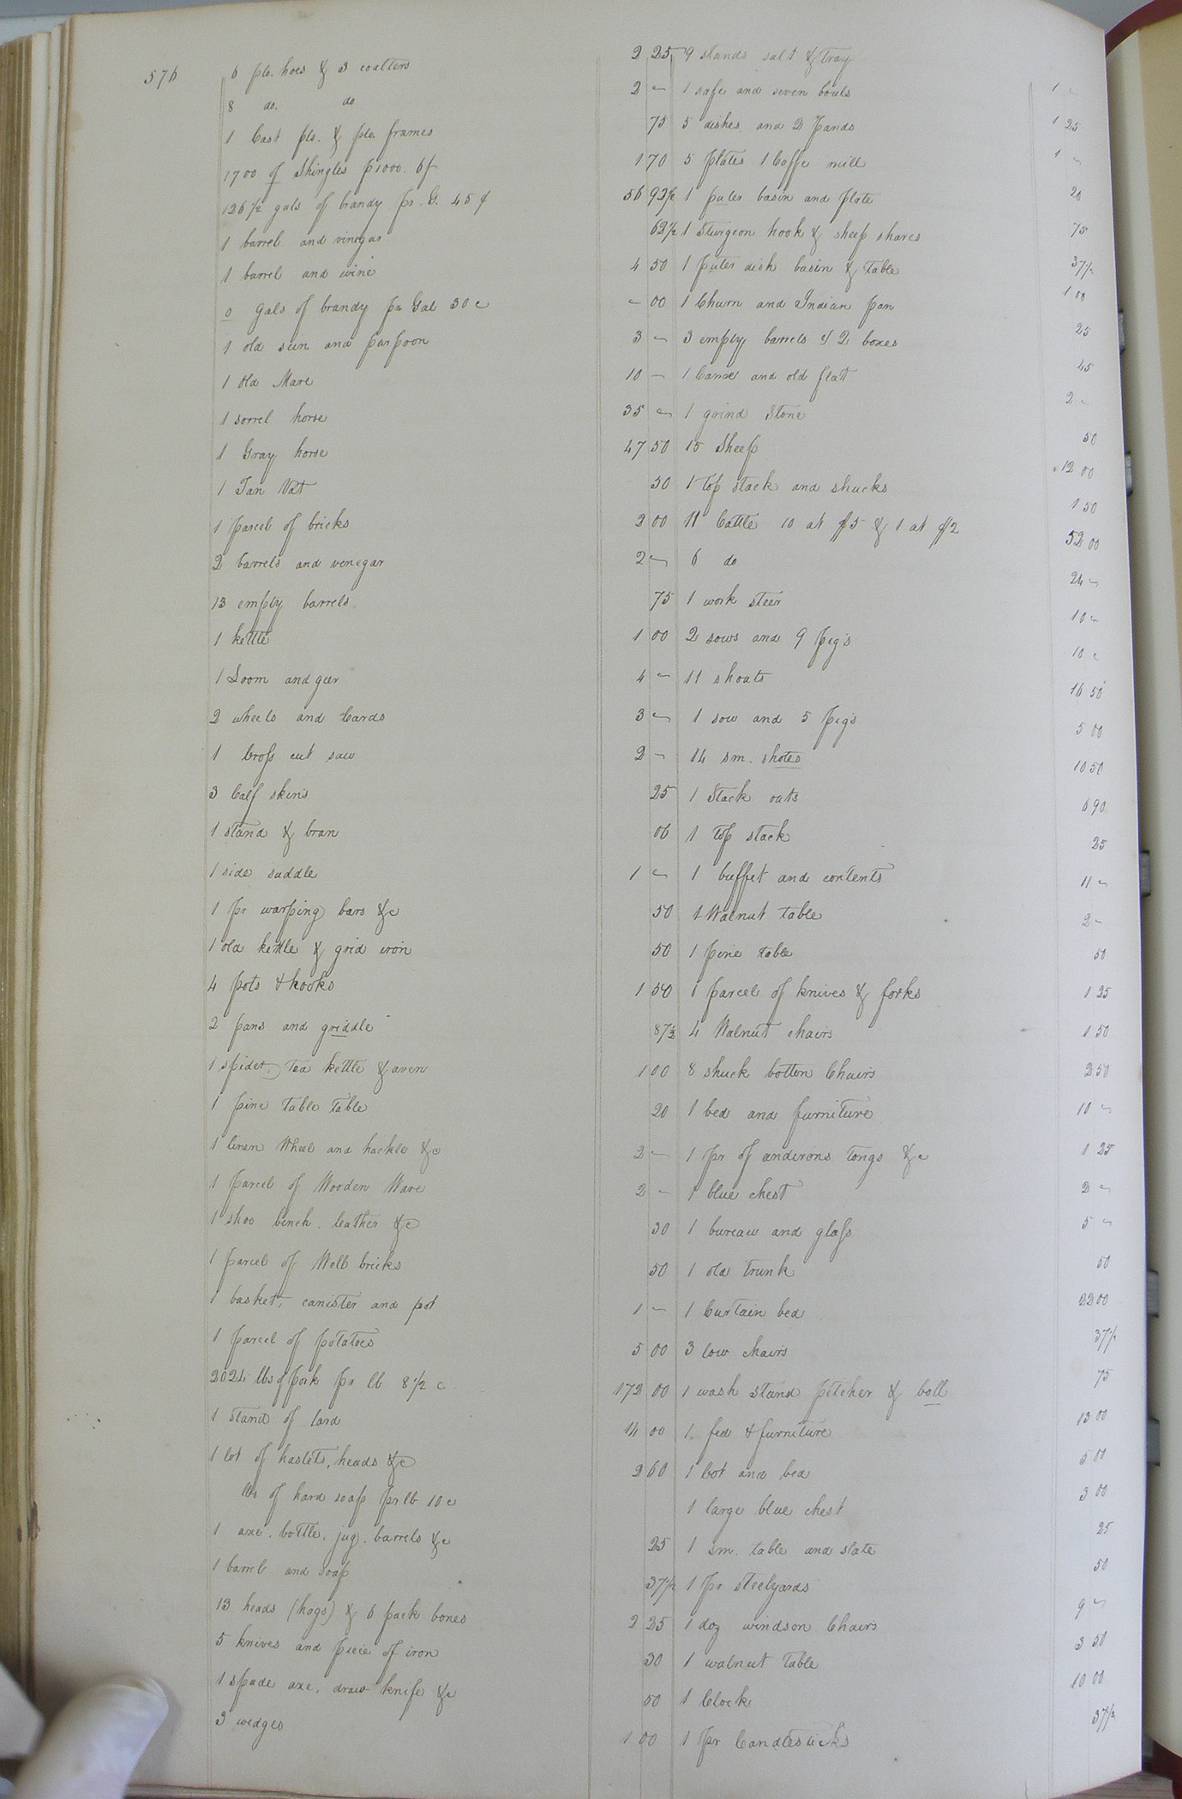 576
6 plo. hoes & 3 coalters 2 25
8 do. do 2 "
1 Cast plo. & plo. frames 75
1700 of Shingles p 1000. 6/ 1 70
126½ gals of brandy pr. G. 45 ¢ 56 92½
1 barrel and vinegar 62½
1 barrel and wine 4 50
0 gals of brandy pr Gal 30 c - 00
1 old sein and parpoon 3 "
1 old Mare 10 -
1 sorrel horse 35 "
1 Gray horse 47 50
1 Tan Vat 50
1 parcel of bricks 2 00
2 barrels and venegar 2 "
13 empty barrels 75
1 kettle 1 00
1 Loom and geer 4 "
2 wheels and Cards 3 "
1 Cross cut saw 2 -
3 Calf skins 25
1 stand & bran 06
1 side saddle 1 "
1 pr warping bars &c 50
1 old kettle & grid iron 50
4 pots & hooks 1 50
2 pans and griddle 87½
1 spider, Tea kettle & oven 1 00
1 pine Table Table 20
1 linen Wheel and hackle &c 2 -
1 parcel of Wooden Ware 2 -
1 shoo bench. leather &c 30
1 parcel of Well bricks 50
1 basket, canister and pot 1 -
1 parcel of potatoes 5 00
2024 lbs of pork pr lb 8½ c 172 00
1 stand of lard 14 00
1 lot of haslets, heads &c 2 60
lbs of hard soap pr lb 10 c
1 axe. bottle. jug. barrels &c 25
1 barrel and soap 37½
13 heads (hogs) & 6 pack bones 2 25
5 knives and piece of iron 30
1 spade axe. draw knife &c 50
3 wedges 1 00
9 stands salt & tray 1 "
1 safe and seven bowls 1 25
5 dishes and 2 pands 1 "
5 plates 1 Coffe mill 20
1 puter basin and plate 75
1 Sturgeon hook & sheep shares 37½
1 puter dish basin & Table 1 00
1 Churn and Indian pan 25
3 empty barrels & 2 boxes 45
1 Canoe and old flat 2 "
1 grind Stone 50
15 Sheep 12 00
1 top stack and shucks 1 50
11 Cattle 10 at $5 & 1 at $2 52 00
6 do 24 "
1 work steer 10 "
2 sows and 9 pig's 10 "
11 shoats 16 50
1 sow and 5 pigs 5 00
14 sm. shotes 10 50
1 Stack oats 6 90
1 top stack 25
1 buffet and contents 11 "
1 Walnut Table 2 -
1 pine table 50
1 parcel of knives & forks 1 25
4 Walnut chairs 1 50
8 shuck botton Chairs 2 50
1 bed and furniture 10 "
1 pr of andirons Tongs &c 1 25
1 blue chest 2 "
1 bureau and glass 5 "
1 old trunk 50
1 Curtain bed 22 00
3 low chairs 37½
1 wash stand pitcher & boll 75
1. fed & furniture 13 00
1 Cot and bed 5 00
1 large blue chest 3 00
1 sm. table and slate 25
1 pr steelyards 50
1 doz windson Chairs 9 "
1 walnut Table 3 50
1 Clock 10 00
1 pr Candlesticks 37½